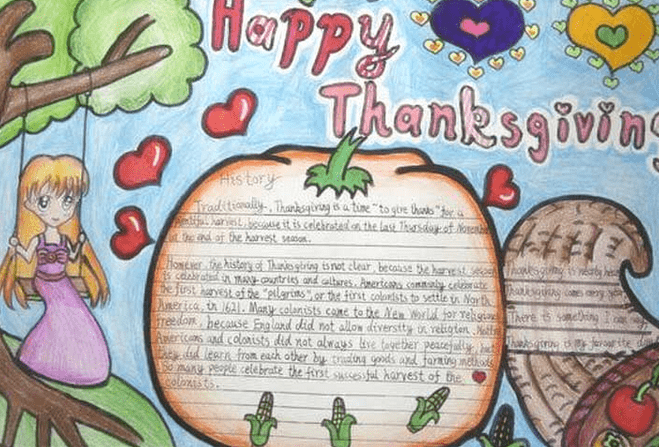 Happy
Thanksgiving
History
Traditionally, Thanksgiving is a time "to give thanks" for a
bountiful harvest, because it is celebrated on the last Thursday of November
at the end of the harvest season.
However, the history of Thanksgiving is not clear, because the harvest season
is celebrated in many countries and cultures. Americans commonly celebrate
the first harvest of the "pilgrims", or the first colonists to settle in North
America, in 1621. Many colonists came to the New World for religious
freedom, because England did not allow diversity in religion. Native
Americans and colonists did not always live together peacefully, but
they did learn from each other by trading goods and farming methods.
So many people celebrate the first successful harvest of the
colonists.
Thanksgiving is nearly here
Thanksgiving comes every year
There is something I can say
Thanksgiving is my favourite day